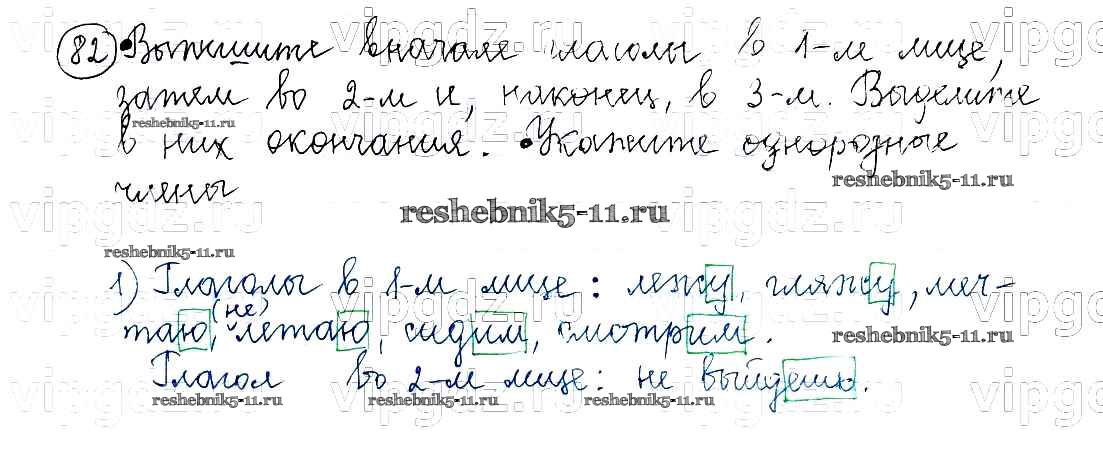 82 • Выпишите вначале глаголы в 1-м лице,
затем во 2-м и, наконец, в 3-м. Выделите
reshebnik5-11.ru
в них окончания. • Укажите однородные
reshebnik5-11.ru
члены
reshebnik5-11.ru
reshebnik5-11.ru
1) Глаголы в 1-м лице: лежу, гляжу, меч-
(не)
таю, летаю, сидим, смотрим.
reshebnik5-11.ru
Глагол во 2-м лице: не выйдешь.
reshebnik5-11.ru reshebnik5-11.ru reshebnik5-11.ru